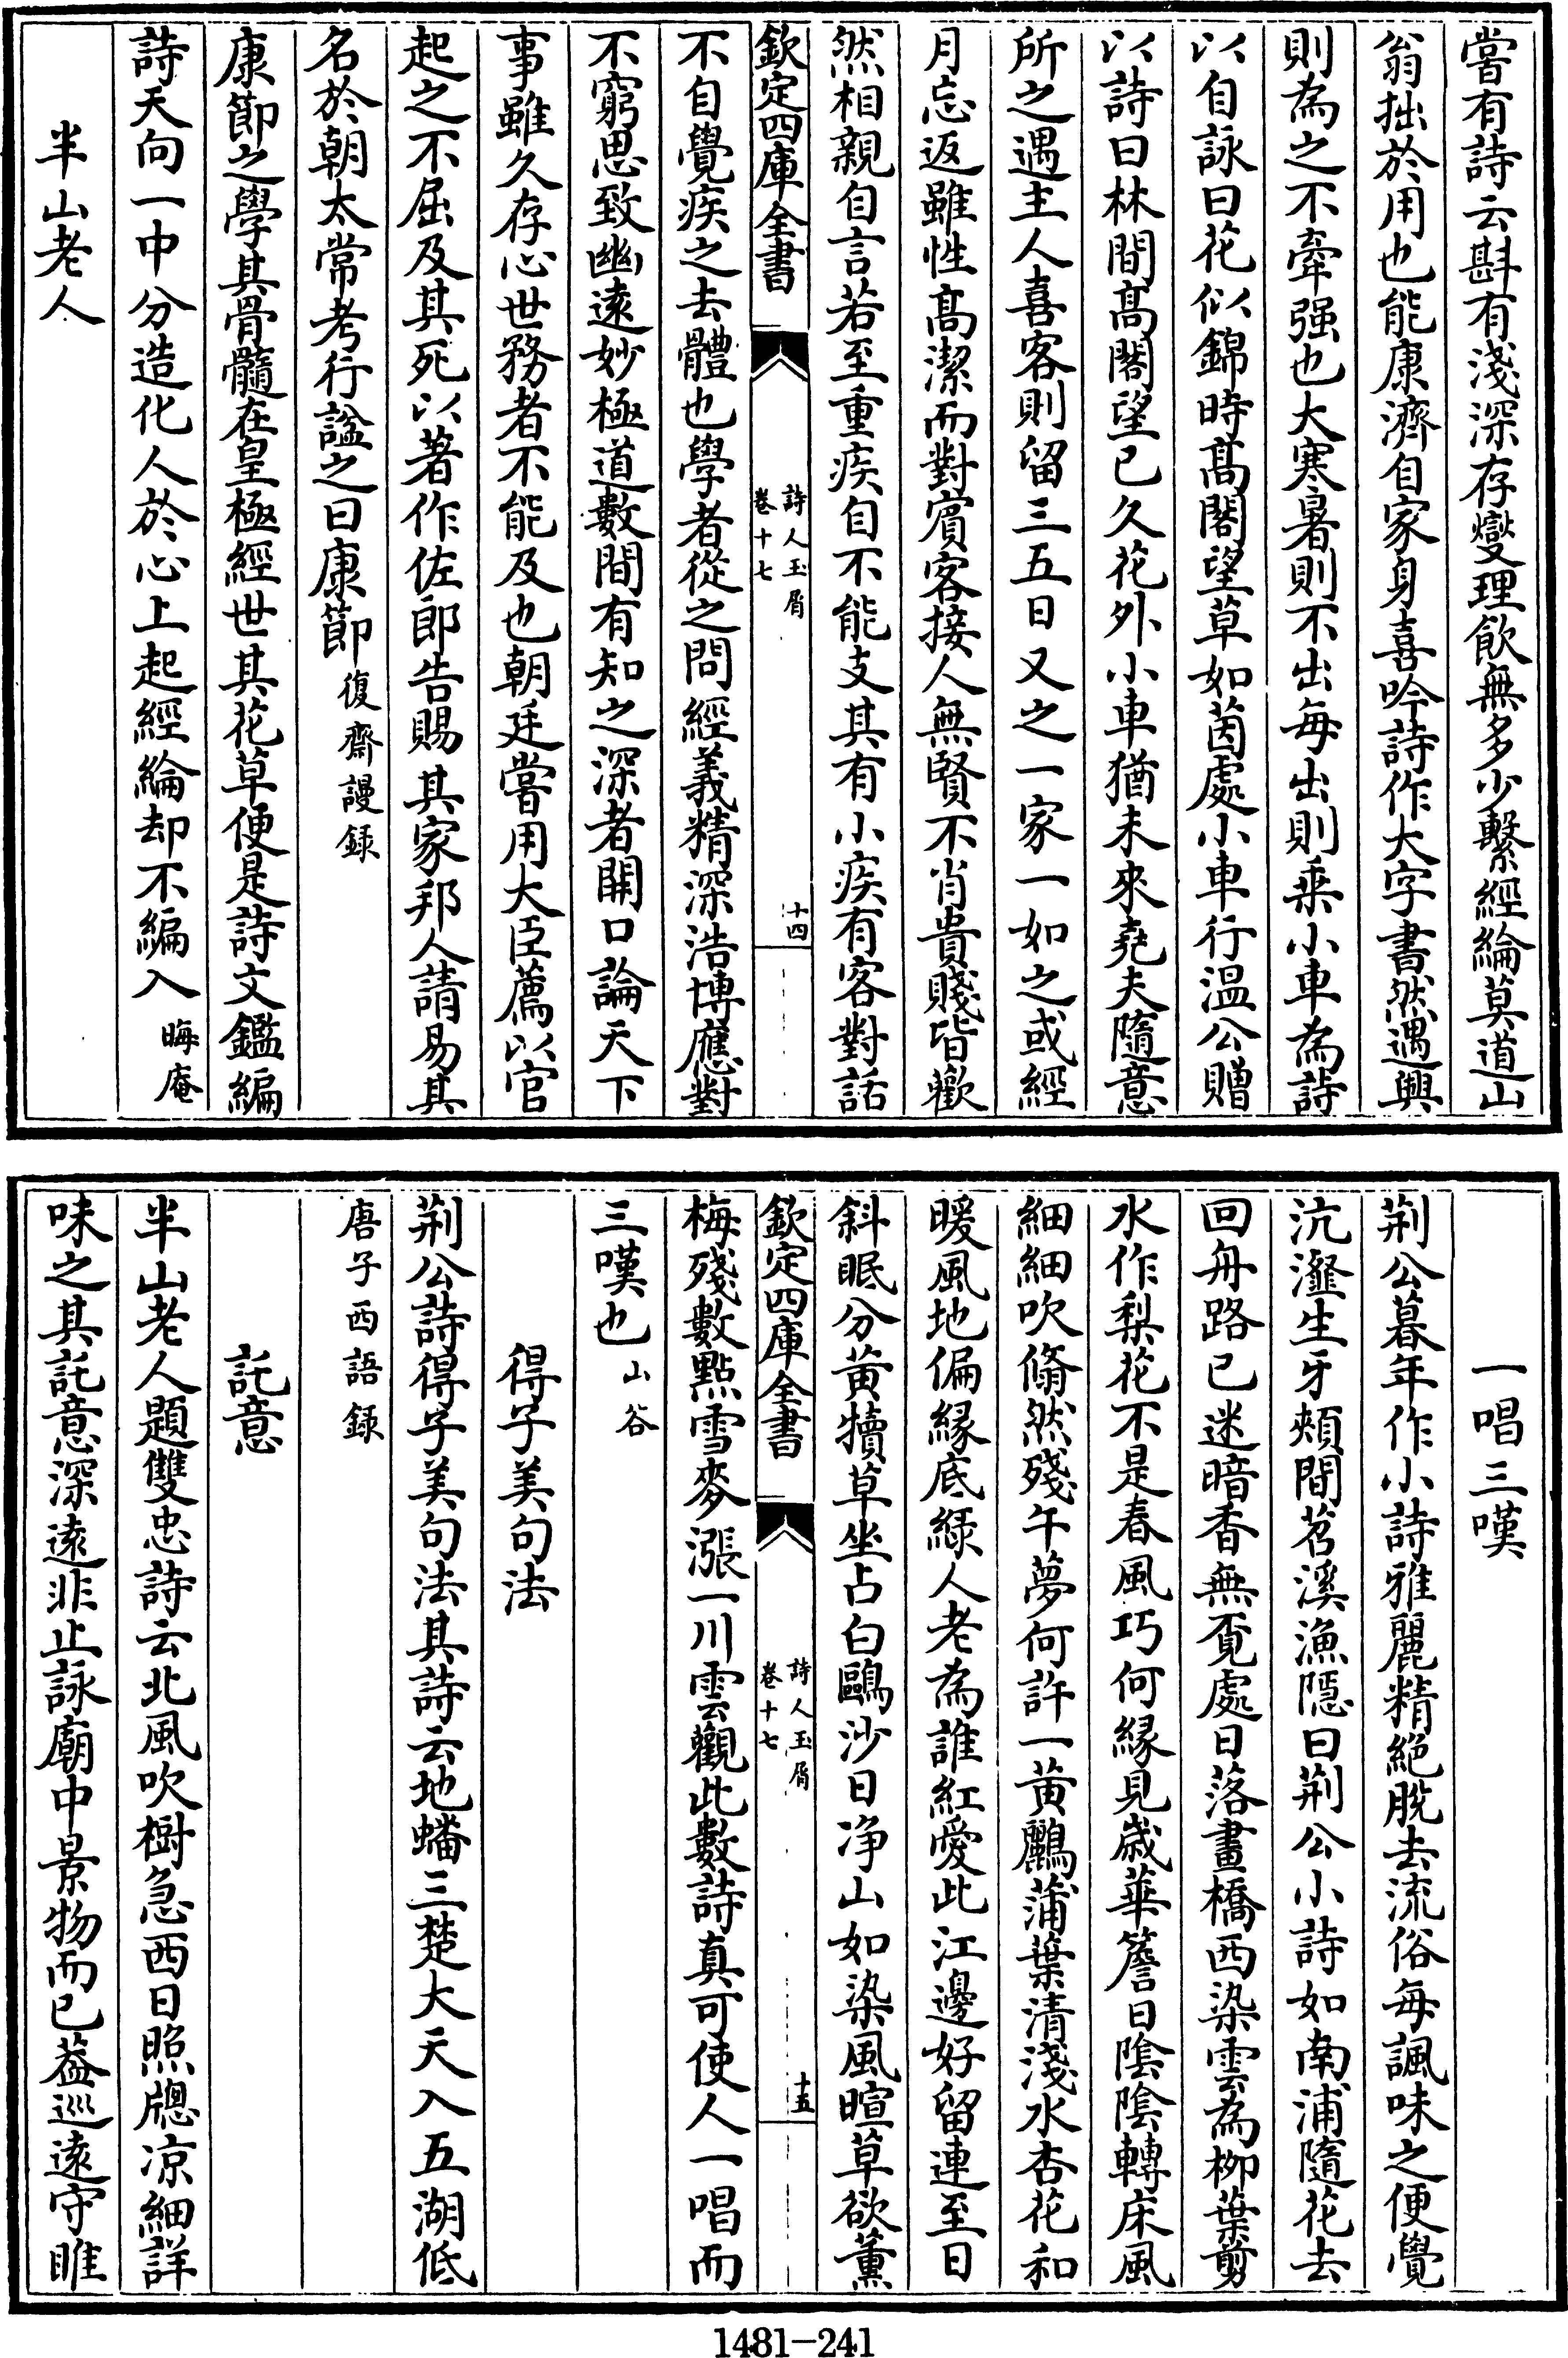 嘗有詩云斟有淺深存燮理飲無多少繫經綸莫道山
翁拙於用也能康濟自家身喜吟詩作大字書然遇興
則為之不牽强也大寒暑則不出每出則乗小車為詩
以自詠曰花似錦時髙閣望草如茵處小車行温公贈
以詩曰林間髙閣望已久花外小車猶未來堯夫隨意
所之遇主人喜客則留三五日又之一家一如之或經
月忘返雖性髙潔而對賔客接人無賢不肖貴賤皆歡
然相親自言若至重疾自不能支其有小疾有客對話
欽定四庫全書
詩人玉屑
卷十七
十四
不自覺疾之去體也學者從之問經義精深浩博應對
不窮思致幽遠妙極道數間有知之深者開口論天下
事雖久存心世務者不能及也朝廷嘗用大臣薦以官
起之不屈及其死以著作佐郎告賜其家邦人請易其
名於朝太常考行諡之曰康節復齋謾録
康節之學其骨髓在皇極經世其花草便是詩文鑑編
詩天向一中分造化人於心上起經綸却不編入晦庵
半山老人
一唱三嘆
荆公暮年作小詩雅麗精絶脱去流俗每諷味之便覺
沆瀣生牙頰間苕溪漁隱曰荆公小詩如南浦隨花去
回舟路已迷暗香無覔處日落畫橋西染雲為栁葉剪
水作梨花不是春風巧何縁見嵗華簷日隂隂轉床風
細細吹翛然殘午夢何許一黄鸝蒲葉清淺水杏花和
暖風地偏縁底緑人老為誰紅愛此江邊好留連至日
斜眠分黄犢草坐占白鷗沙日净山如染風暄草欲薰
欽定四庫全書
詩人玉屑
卷十七
十五
梅殘數點雪麥漲一川雲觀此數詩真可使人一唱而
三嘆也山谷
得子美句法
荆公詩得子美句法其詩云地蟠三楚大天入五湖低
唐子西語録
託意
半山老人題雙忠詩云北風吹樹急西日照牕凉細詳
味之其託意深逺非止詠廟中景物而已葢巡逺守睢
1481-241